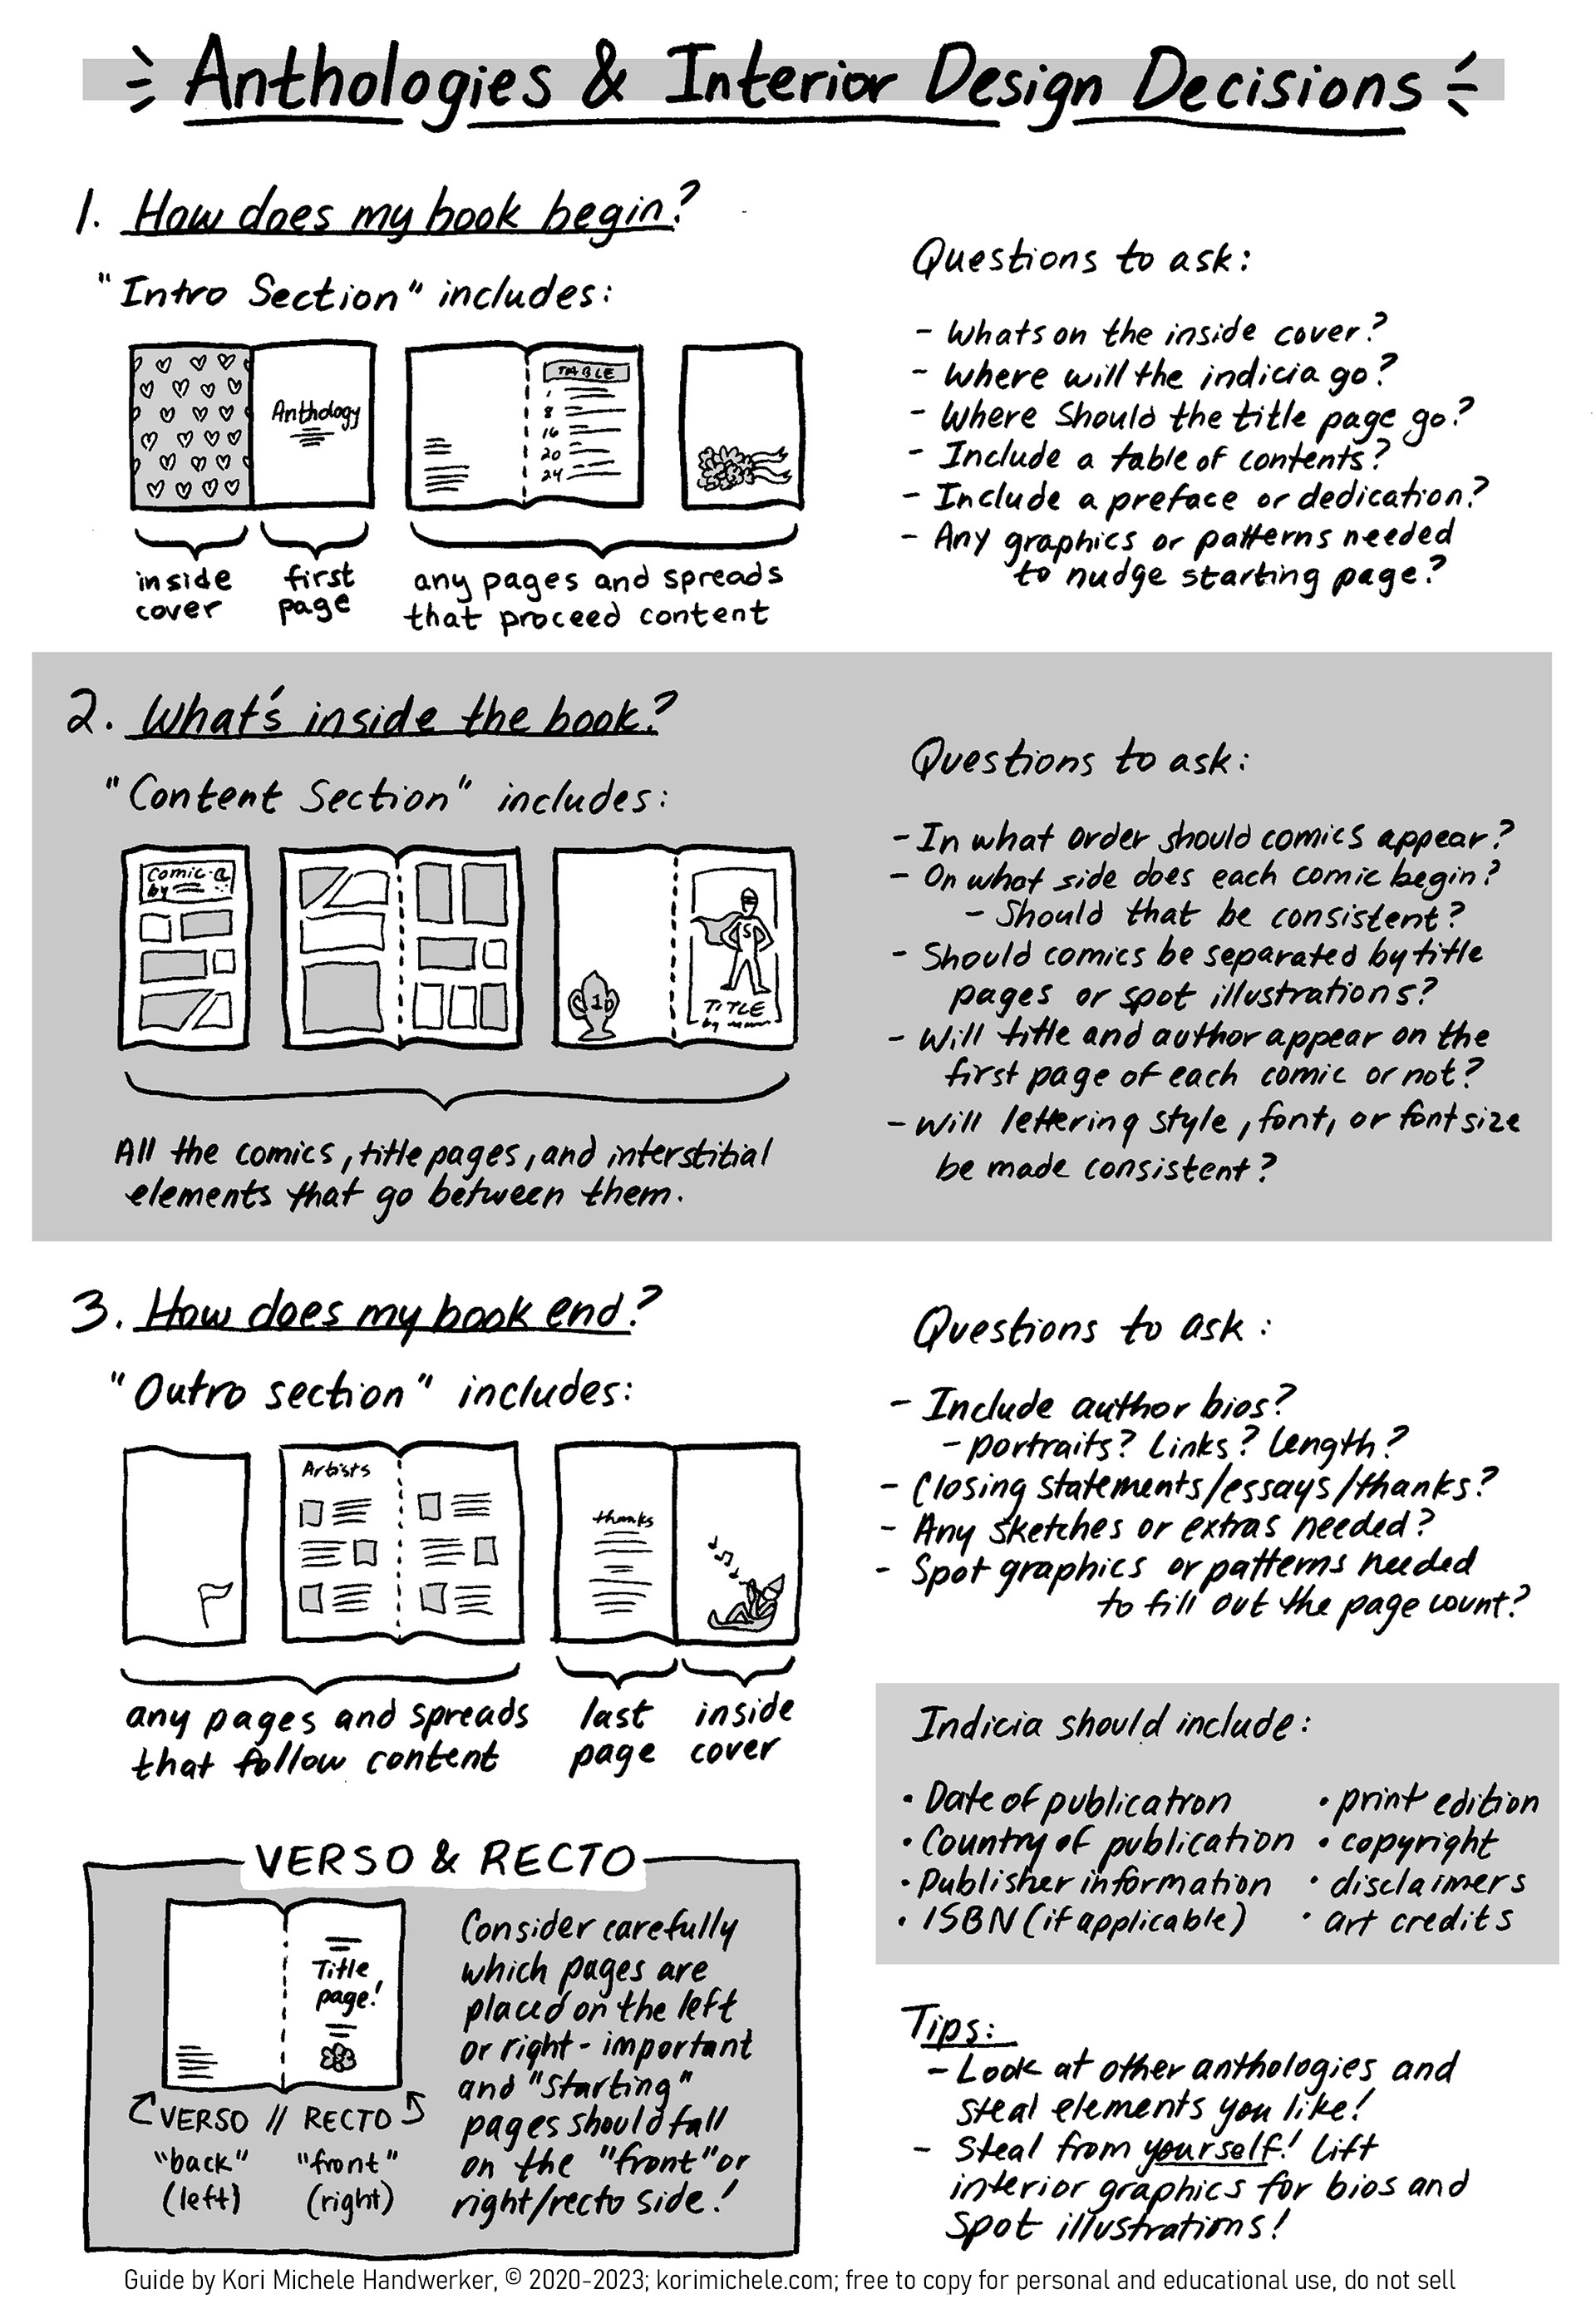 Anthologies & Interior Design Decisions
1. How does my book begin?
"Intro Section" includes:
Anthology
TABLE
1
8
16
20
24
inside
cover
first
page
any pages and spreads
that proceed content
Questions to ask:
- Whats on the inside cover?
- Where will the indicia go?
- Where Should the title page go?
- Include a table of contents?
- Include a preface or dedication?
- Any graphics or patterns needed
to nudge starting page?
2. What's inside the book?
"Content Section" includes:
Comic a
by
1D
S
TITLE
by
All the comics, title pages, and interstitial
elements that go between them.
Questions to ask:
- In what order should comics appear?
- On what side does each comic begin?
- Should that be consistent?
- Should comics be separated by title
pages or spot illustrations?
- Will title and author appear on the
first page of each comic or not?
- Will lettering style, font, or font size
be made consistent?
3. How does my book end?
"Outro section" includes:
Artists
thanks
any pages and spreads
that follow content
last
page
inside
cover
Questions to ask:
- Include author bios?
- portraits? Links? Length?
- Closing statements/essays/thanks?
- Any sketches or extras needed?
- Spot graphics or patterns needed
to fill out the page count?
Indicia should include:
• Date of publication
• Country of publication
• Publisher information
• ISBN (if applicable)
• print edition
• copyright
• disclaimers
• art credits
VERSO & RECTO
Title
page!
VERSO // RECTO
"back" "front"
(left) (right)
Consider carefully
which pages are
placed on the left
or right - important
and "starting"
pages should fall
on the "front" or
right/recto side!
Tips:
- Look at other anthologies and
steal elements you like!
- Steal from yourself! Lift
interior graphics for bios and
spot illustrations!
Guide by Kori Michele Handwerker, © 2020-2023; korimichele.com; free to copy for personal and educational use, do not sell